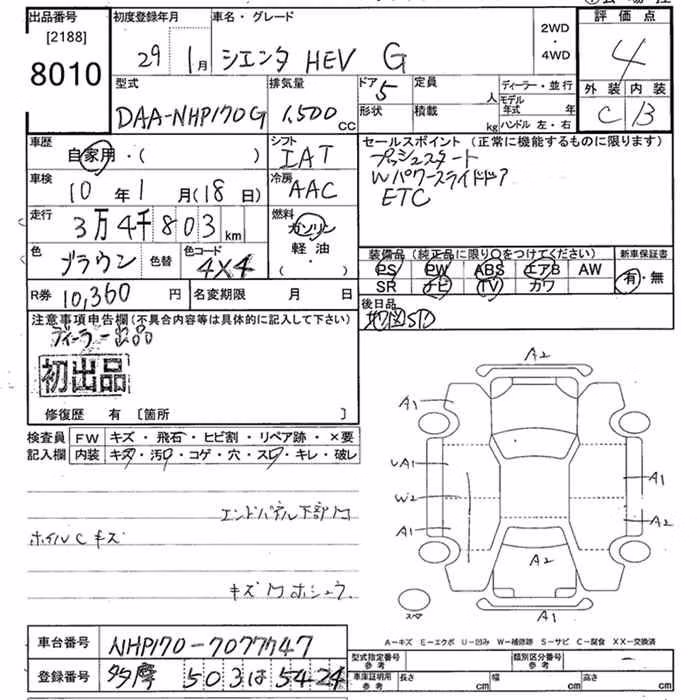 出品番号
[2188]
8010
初度登録年月
29 1月
車名・グレード
シエンタ HEV G
2WD
・
4WD
評価点
4
外装 内装
C B
型式
DAA-NHP170G
排気量
1,500
CC
ドア 5
形状
定員
人
積載
kg
ディーラー・並行
モデル
年式 年
ハンドル 左・右
車歴
自家用・( )
シフト
IAT
セールスポイント (正常に機能するものに限ります)
プッシュスタート
Wパワースライドドア
ETC
車検
10年1月(18日)
冷房
AAC
走行
3万4千803km
燃料
ガソリン
軽油
・
( )
色
ブラウン
色替
色コード
4X4
装備品(純正品に限り○をつけてください)
PS PW ABS エアB AW
SR ナビ TV カワ
新車保証書
有・無
R券 10,360 円
名変期限 月 日
後日品
地図SD
注意事項申告欄(不具合内容等は具体的に記入して下さい)
ディーラー出品
初出品
修復歴 有 [箇所 ]
検査員
記入欄
FW キズ・飛石・ヒビ割・リペア跡・×要
内装 キズ・汚れ・コゲ・穴・スレ・キレ・破レ
エンドパネル下部
ホイルCキズ
キズ ホシュウ
A2
A1
UA1
A1
W2
A1
A2
A2
A1
スペア
A-キズ E-エクボ U-凹み W-補修跡 S-サビ C-腐食 XX-交換済
車台番号
NHP170-7077747
登録番号
多摩 503は5424
型式指定番号
参考
類別区分番号
参考
－
車庫証明用
参考
長さ cm
幅 cm
高さ cm